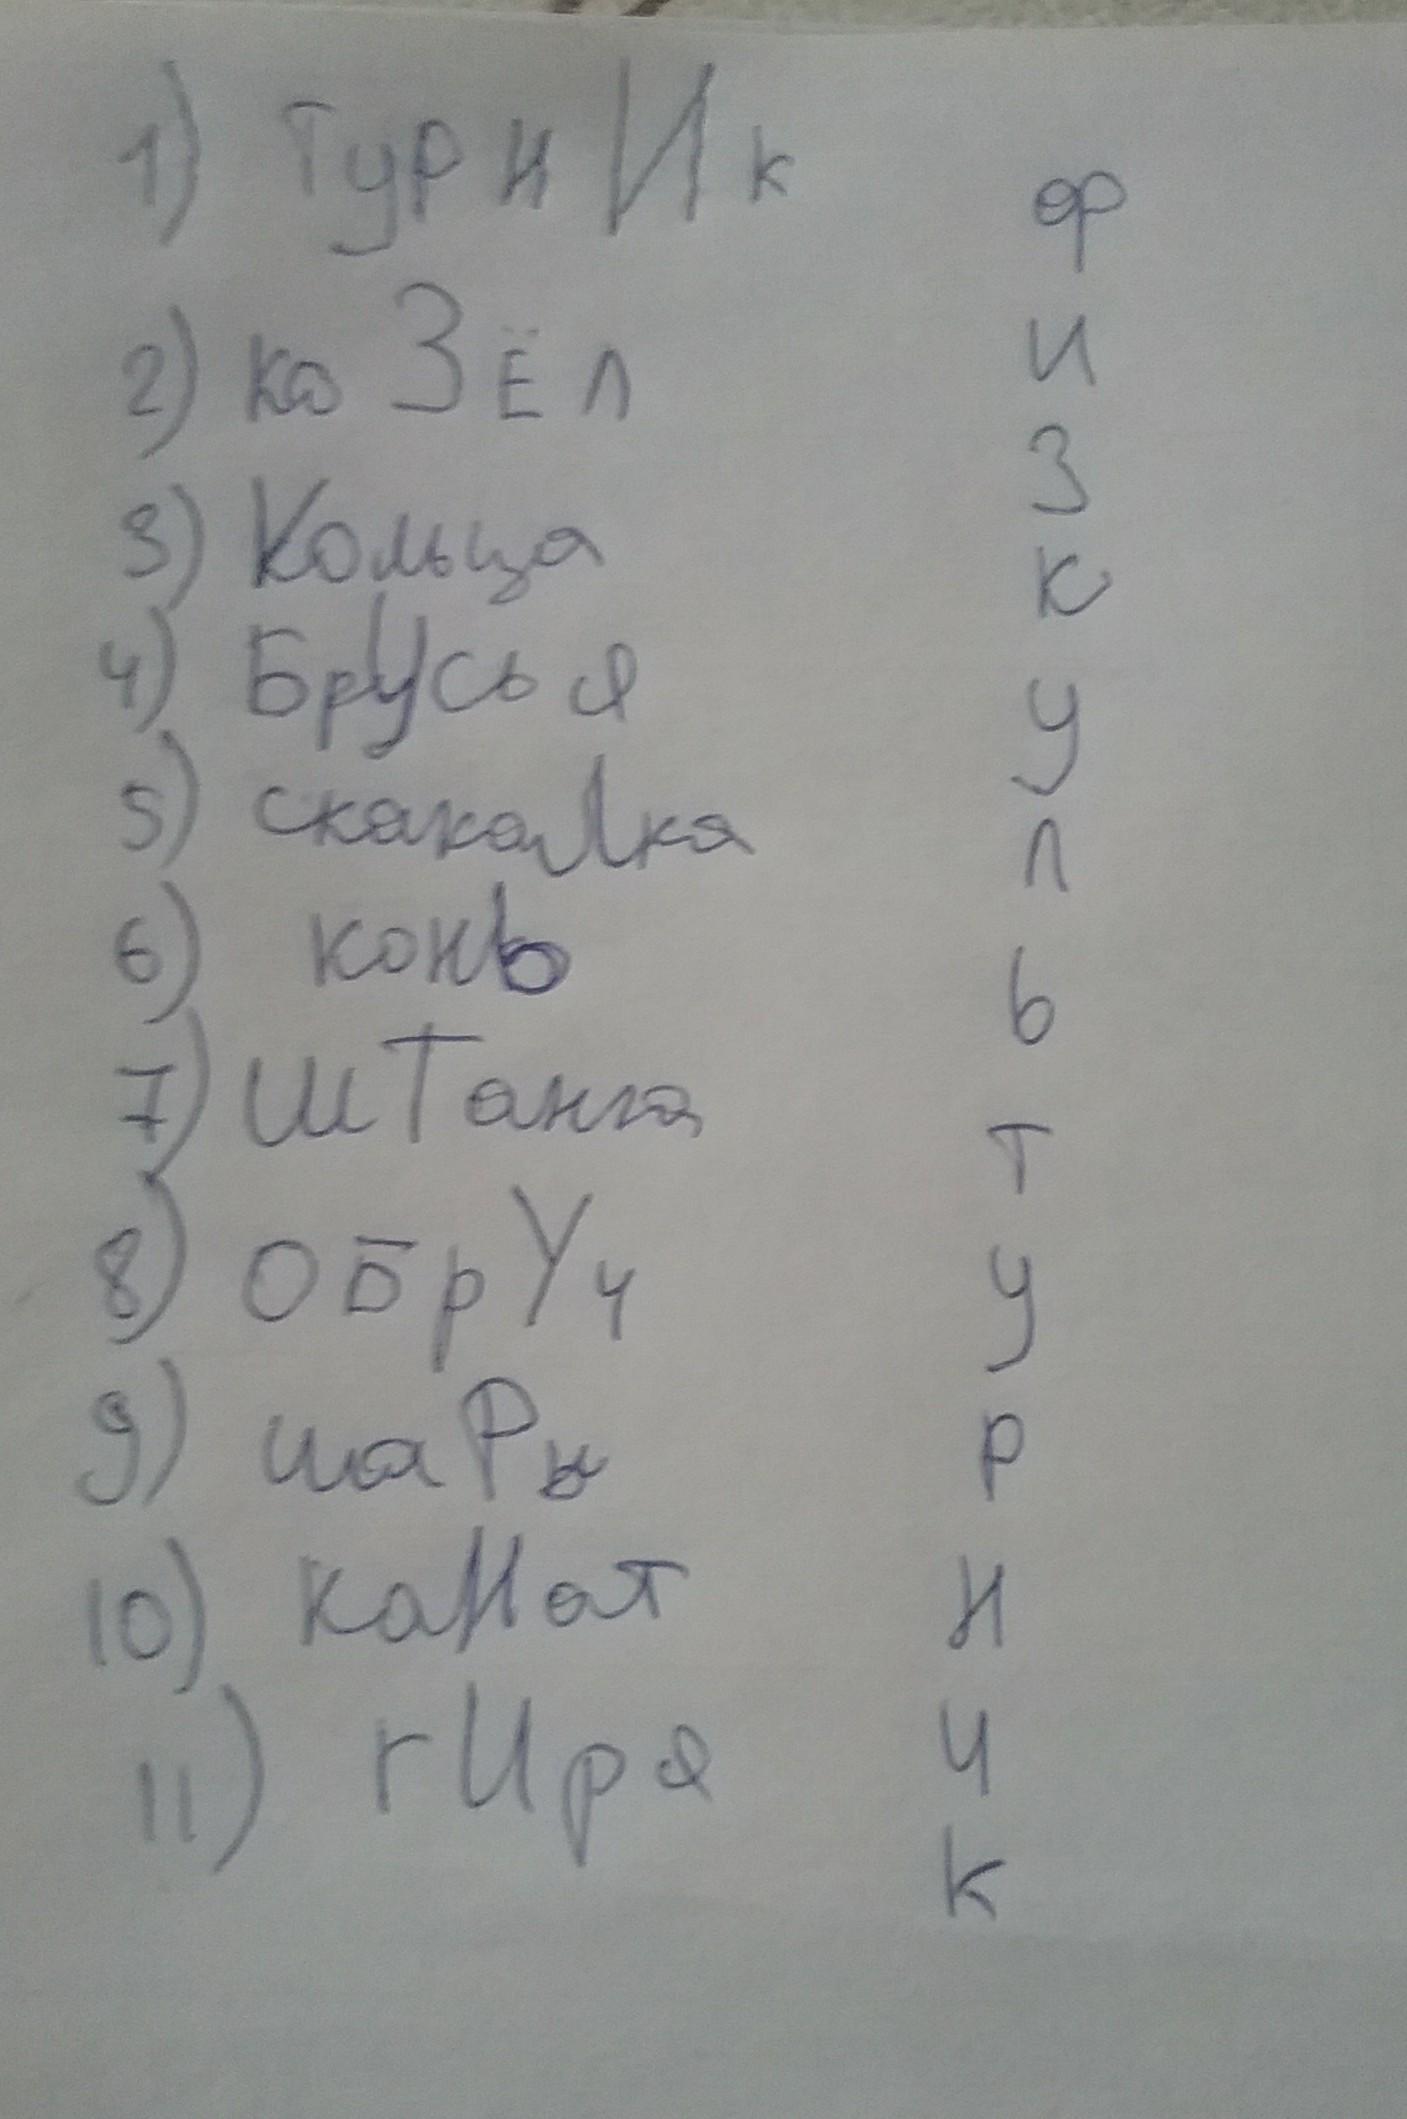 1) турнИк
2) коЗЁл
3) Кольца
4) БрУсья
5) скакаЛка
6) конЬ
7) шТанга
8) обрУч
9) шаРы
10) каНат
11) гИря
ф
и
з
к
у
л
ь
т
у
р
н
и
к